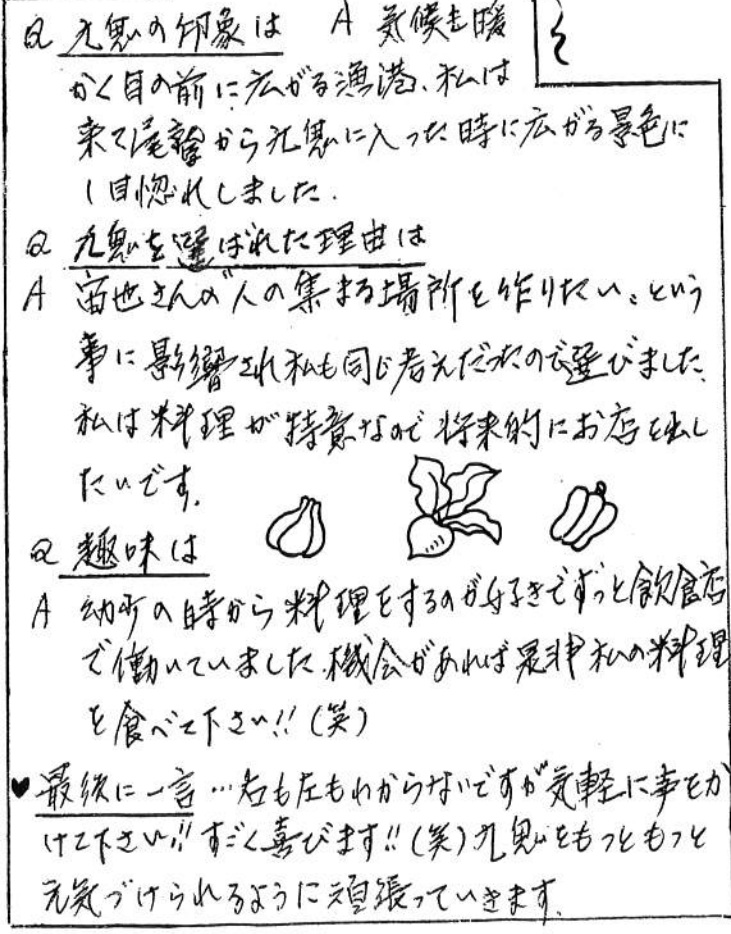 Q 九鬼の印象は A 気候も暖
かく目の前に広がる漁港、私は
来て尾鷲から九鬼に入った時に広がる景色に
1目惚れしました.
Q 九鬼を選ばれた理由は
A 宙也さんの"人の集まる場所を作りたい。という
事に影響され私も同じ考えだったので選びました.
私は料理が特意なので将来的にお店を出し
たいです.
Q 趣味は
A 幼少の時から料理をするのが好きでずっと飲食店
で働いていました.機会があれば是非私の料理
を食べて下さい!!(笑)
♥最後に一言…右も左もわからないですが気軽に声をか
けて下さい!!すごく喜びます!!(笑)九鬼をもっともっと
元気づけられるように頑張っていきます.